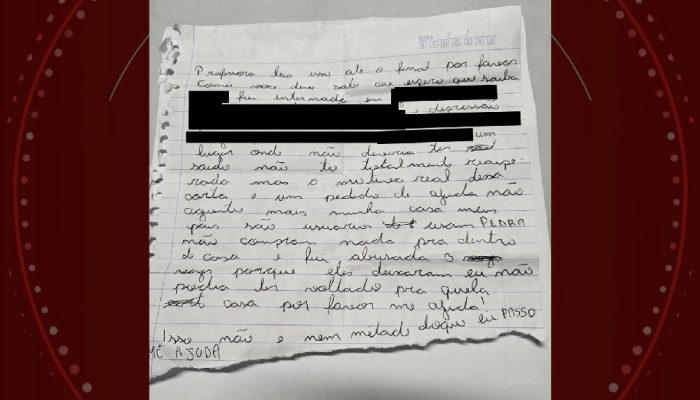 Data / /
S T Q Q S S D
Professora leia isso até o final por favor
Como voce deve sabe eu espero que saiba
fui internada em
e depressão
um
lugar onde não deveria ter
saido não to totalmente recupe-
rada mas o motivo real dessa
carta e um pedido de ajuda não
aguento mais minha casa meus
pais são usuarios usam PEDRA
não compram nada pra dentro
d casa e fui abusada 3
vezes porque eles deixaram eu não
podia ter voltado pra quela
casa por favor me ajuda!
Isso não e nem metade doque eu PASSO
ME AJUDA